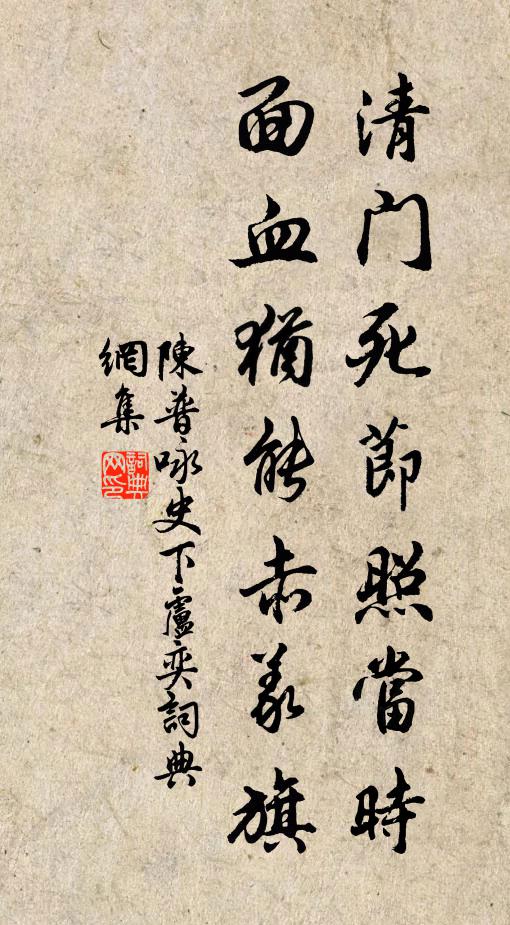 清门死節照當時
面血猶能赤義旗
陳普咏史下盧奕詞典
網集
詞典
网印